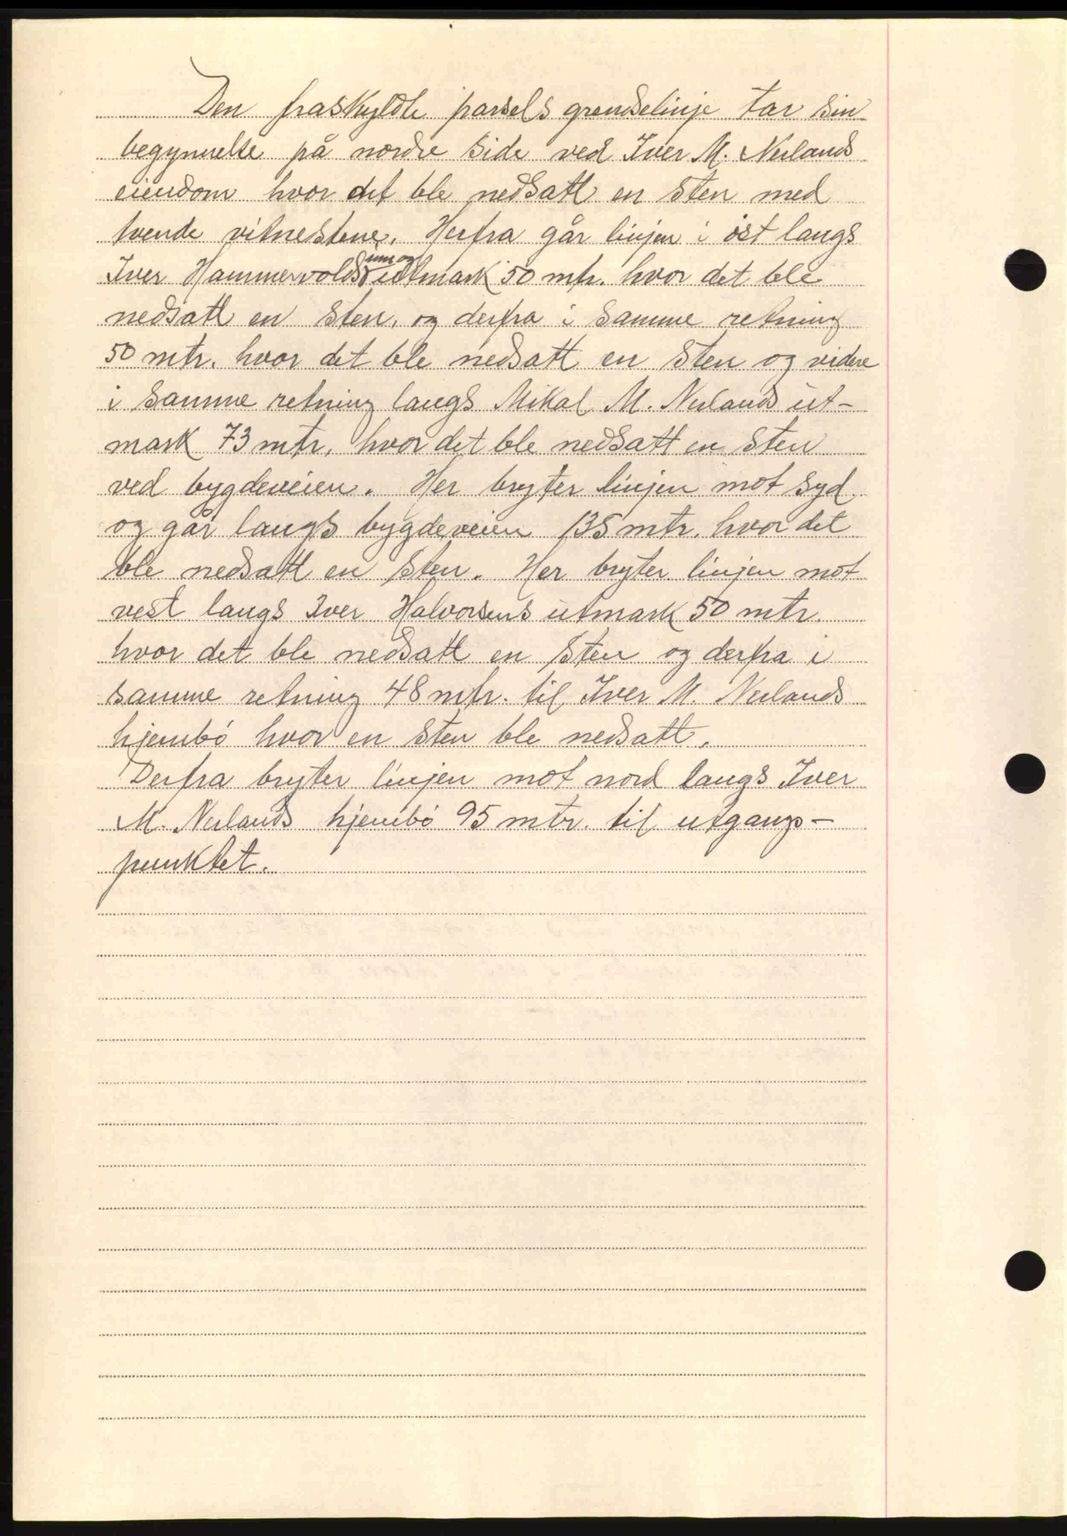 Den fraskyldte parsels grenselinje tar sin
begynnelse på nordre side ved Iver M. Neilands
eiendom hvor det ble nedsatt en sten med
tvende vitnestene. Herfra går linjen i öst langs
Iver Hammervolds inn og utmark 50 mtr. hvor det ble
nedsatt en sten, og derfra i samme retning
50 mtr. hvor det ble nedsatt en sten og videre
i samme retning langs Mikal M. Neilands ut-
mark 73 mtr. hvor det ble nedsatt en sten
ved bygdeveien. Her bryter linjen mot syd
og går langs bygdeveien 135 mtr. hvor det
ble nedsatt en sten. Her bryter linjen mot
vest langs Iver Halvorsens utmark 50 mtr.
hvor det ble nedsatt en sten og derfra i
samme retning 48 mtr. til Iver M. Neilands
hjembö hvor en sten ble nedsatt.
Derfra bryter linjen mot nord langs Iver
M. Neilands hjembö 95 mtr. til utgangs-
punktet.